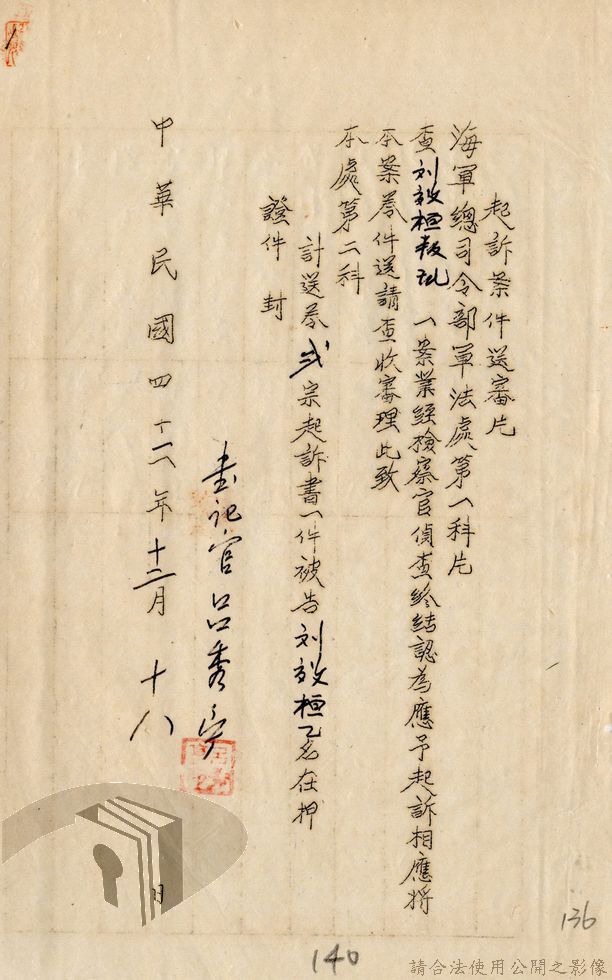 起訴案件送審片
海軍總司令部軍法處第一科片
查刘效桓叛乱一案業經檢察官偵查終結認為應予起訴相應將
本案卷件送請查收審理此致
本處第二科
計送卷弍宗起訴書一件被告刘效桓乙名在押
證件 封
書記官呂秀
中華民國四十二年十二月十八日
136
140
請合法使用公開之影像